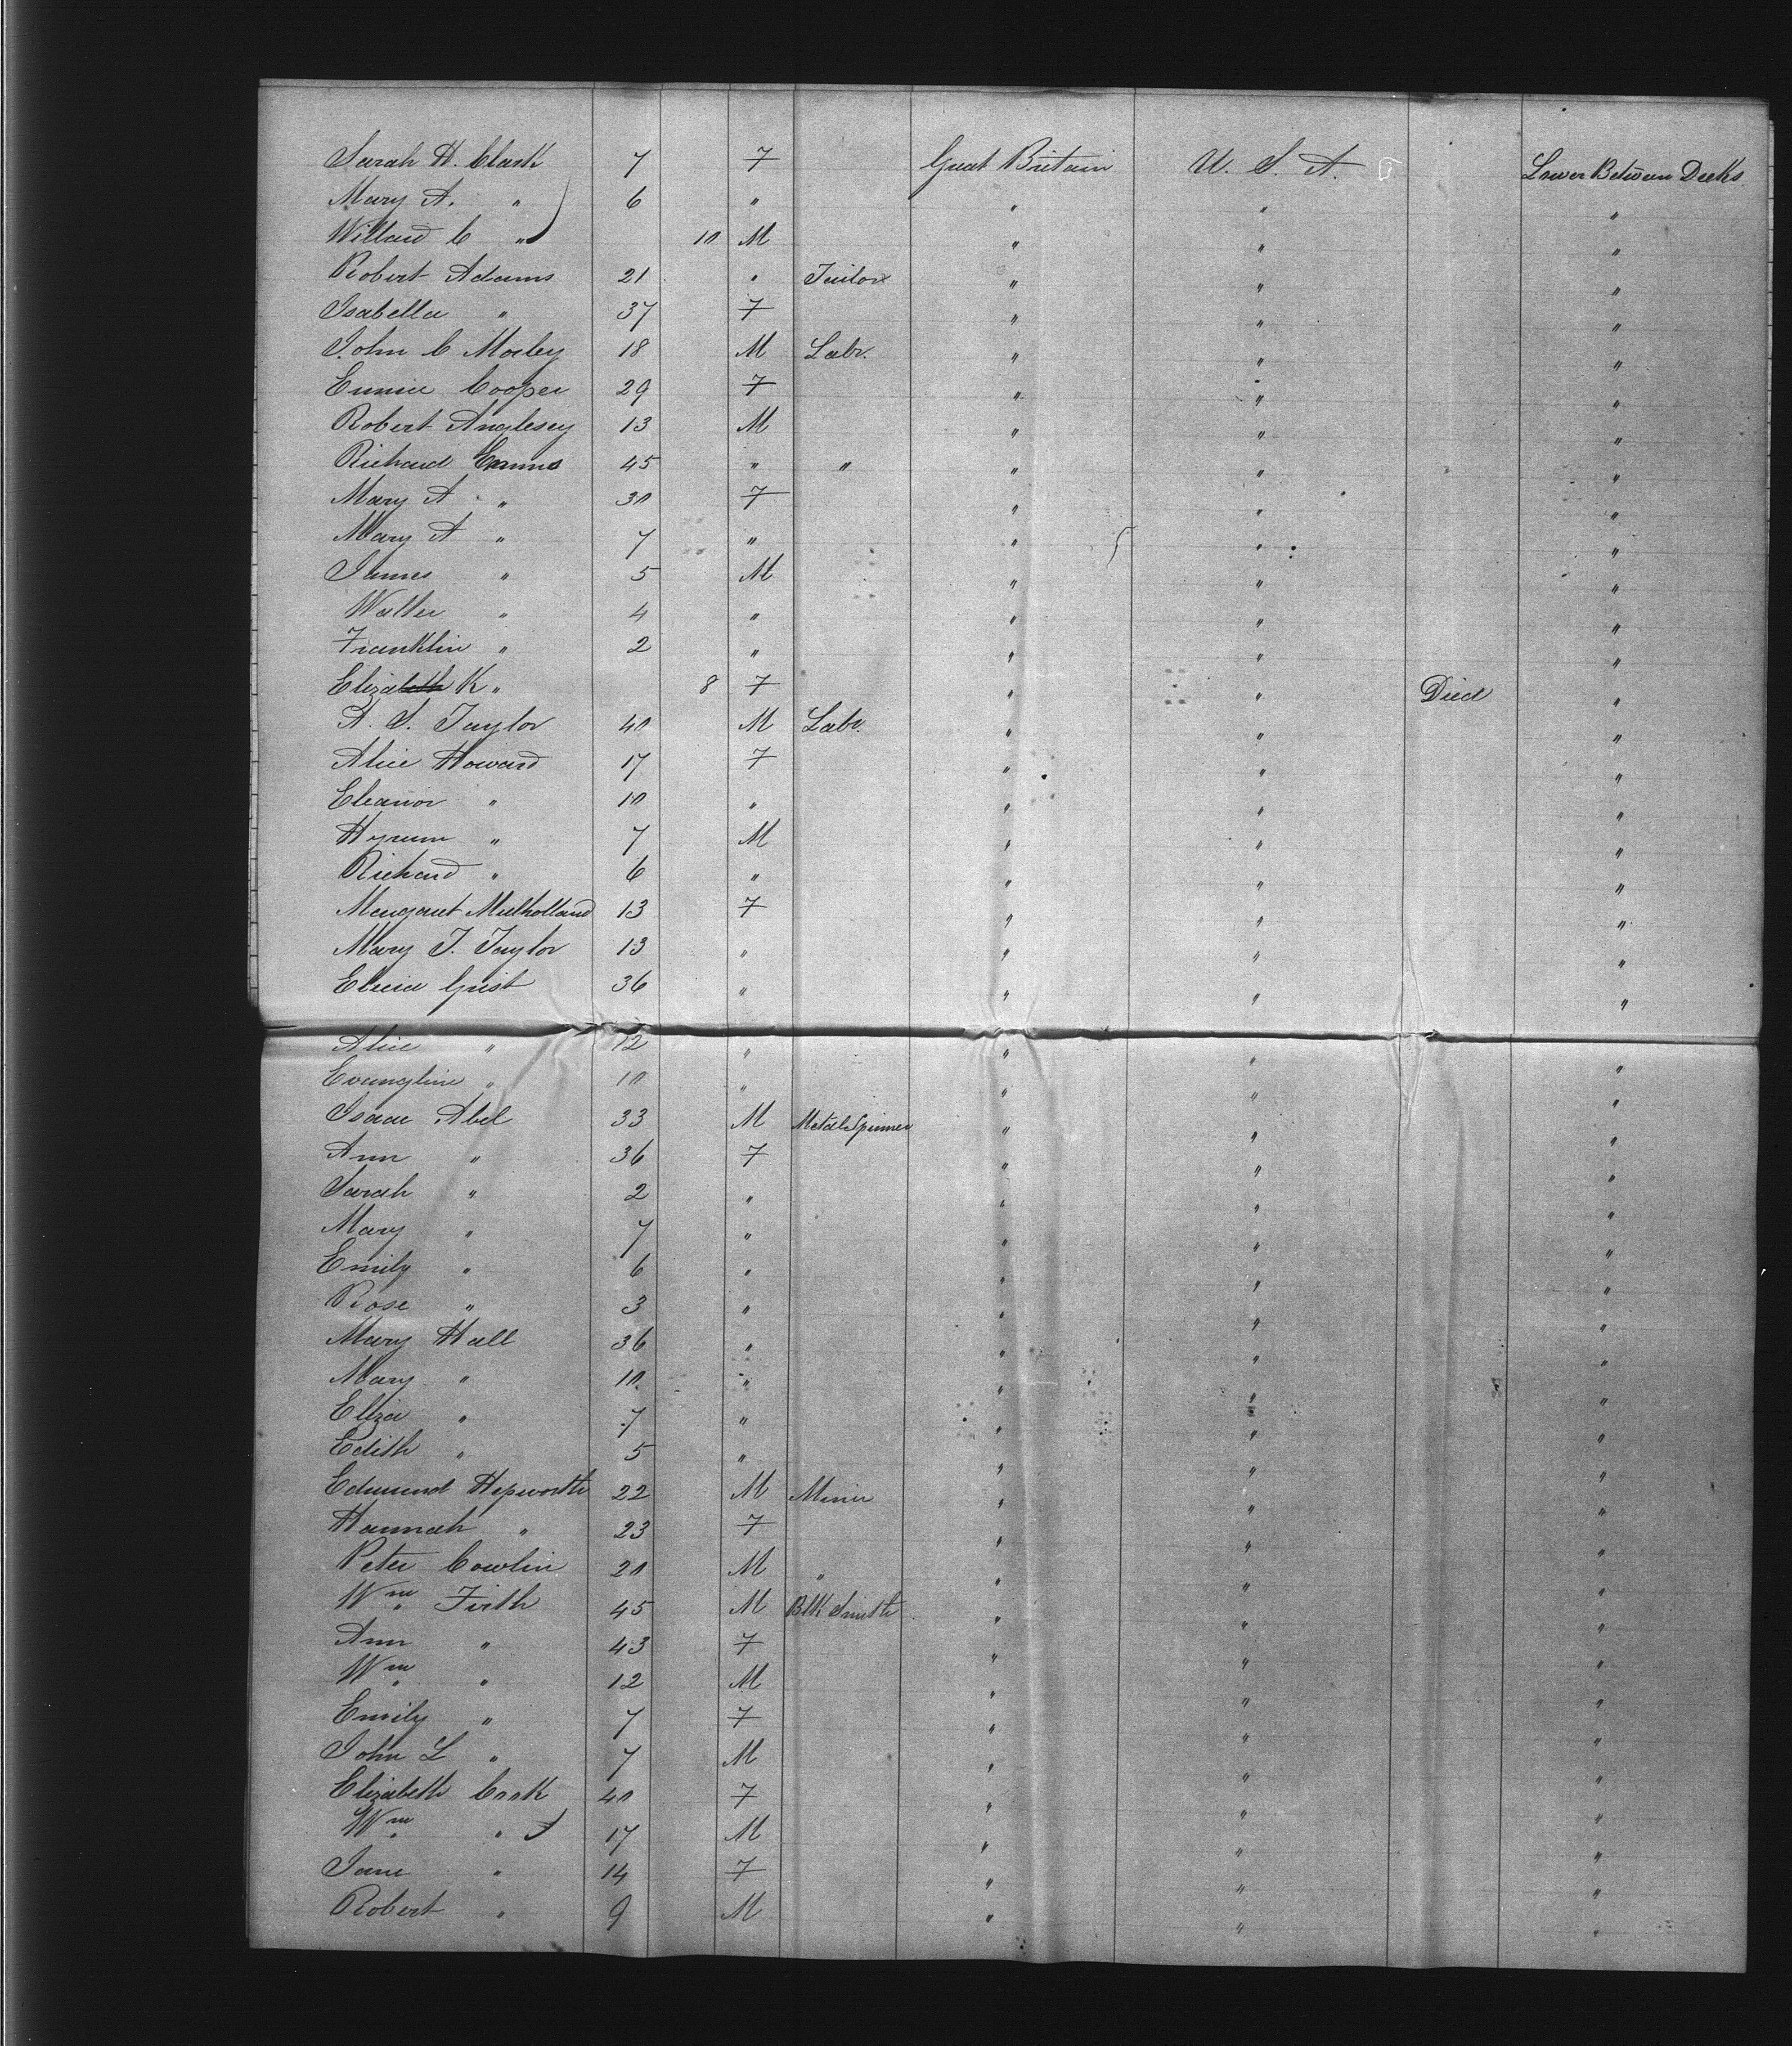 Sarah H. Clark 7 F Great Britain U. S. A. Lower Between Decks
Mary A. " 6 " " " "
Willard C " 10 M " " "
Robert Adams 21 " Tailor " " "
Isabella " 37 F " " "
John C Morley 18 M Labr. " " "
Eunice Cooper 29 F " " "
Robert Anglesey 13 M " " "
Richard Emms 45 " " " " "
Mary A " 30 F " " "
Mary A " 7 " " " "
James " 5 M " " "
Walter " 4 " " " "
Franklin " 2 " " " "
Elizabeth K " 8 F " " Died "
A. S. Taylor 40 M Labr. " " "
Alice Howard 17 F " " "
Eleanor " 10 " " " "
Hyrum " 7 M " " "
Richard " 6 " " " "
Margaret Mulholland 13 F " " "
Mary J. Taylor 13 " " " "
Grist 36 " " " "
Alice " 12 " " " "
Evangline " 10 " " " "
Isaac Abel 33 M Metal Spinner " " "
Ann " 36 F " " "
Sarah " 2 " " " "
Mary " 7 " " " "
Emily " 6 " " " "
Rose " 3 " " " "
Mary Hall 36 " " " "
Mary " 10 " " " "
Eliza " 7 " " " "
Edith " 5 " " " "
Edmund Hepworth 22 M Miner " " "
Hannah " 23 F " " "
Peter Cowlin 20 M " " " "
Wm Firth 45 M Blk Smith " " "
Ann " 43 F " " "
Wm " 12 M " " "
Emily " 7 F " " "
John L " 7 M " " "
Elizabeth Cook 40 F " " "
Wm " 17 M " " "
Jane " 14 F " " "
Robert " 9 M " " "